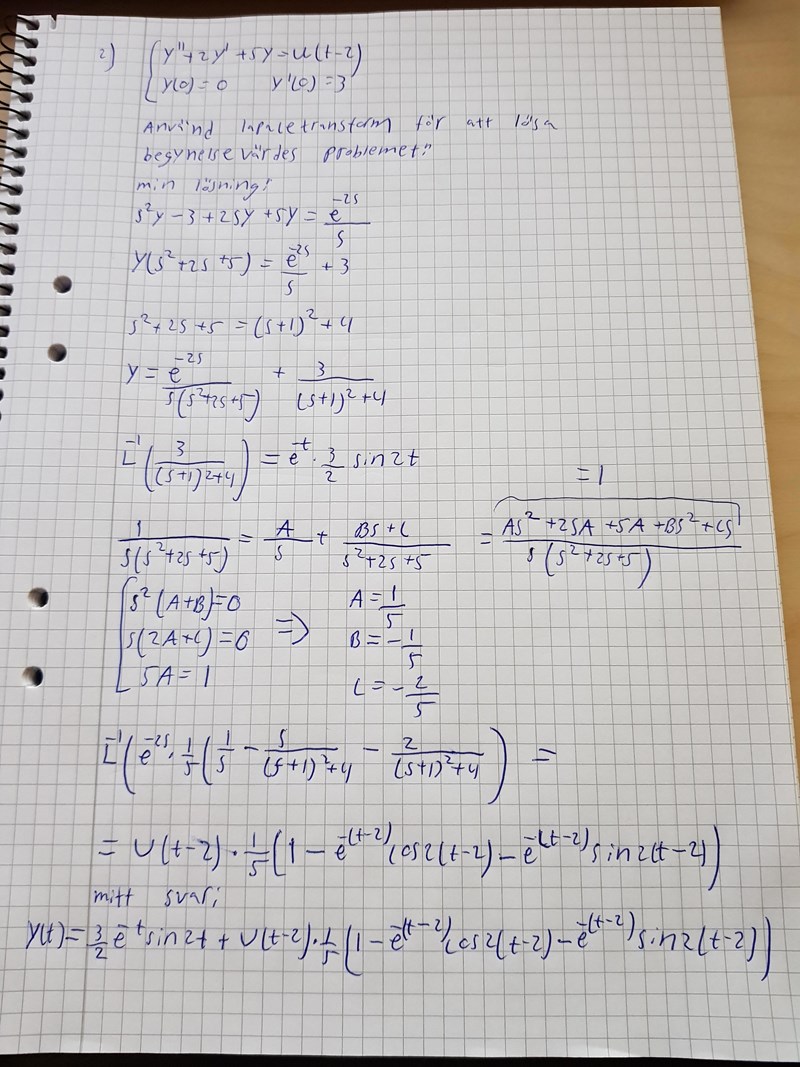 2) { y''+2y'+5y=u(t-2)
y(0)=0 y'(0)=3
Använd lapacetransform för att lösa
begynelsevärdes problemet:
min lösning:
s²y-3+2sy+5y= e^{-2s}/s
Y(s²+2s+5)= e^{-2s}/s +3
s²+2s+5=(s+1)²+4
y= e^{-2s}/(s(s²+2s+5)) + 3/((s+1)²+4)
L^{-1}(3/((s+1)²+4)) = e^{-t}·3/2 sin2t
=1
1/(s(s²+2s+5)) = A/s + (Bs+C)/(s²+2s+5) = (As²+2sA+5A+Bs²+Cs)/(s(s²+2s+5))
{ s²(A+B)=0 A=1/5
s(2A+C)=0 ⇒ B=-1/5
5A=1 C=-2/5
L^{-1}(e^{-2s}·1/5(1/s - s/((s+1)²+4) - 2/((s+1)²+4)) =
= U(t-2)·1/5(1-e^{-(t-2)}cos2(t-2)-e^{-(t-2)}sin2(t-2))
mitt svar:
y(t)=3/2 e^{-t}sin2t+U(t-2)·1/5(1-e^{-(t-2)}cos2(t-2)-e^{-(t-2)}sin2(t-2))